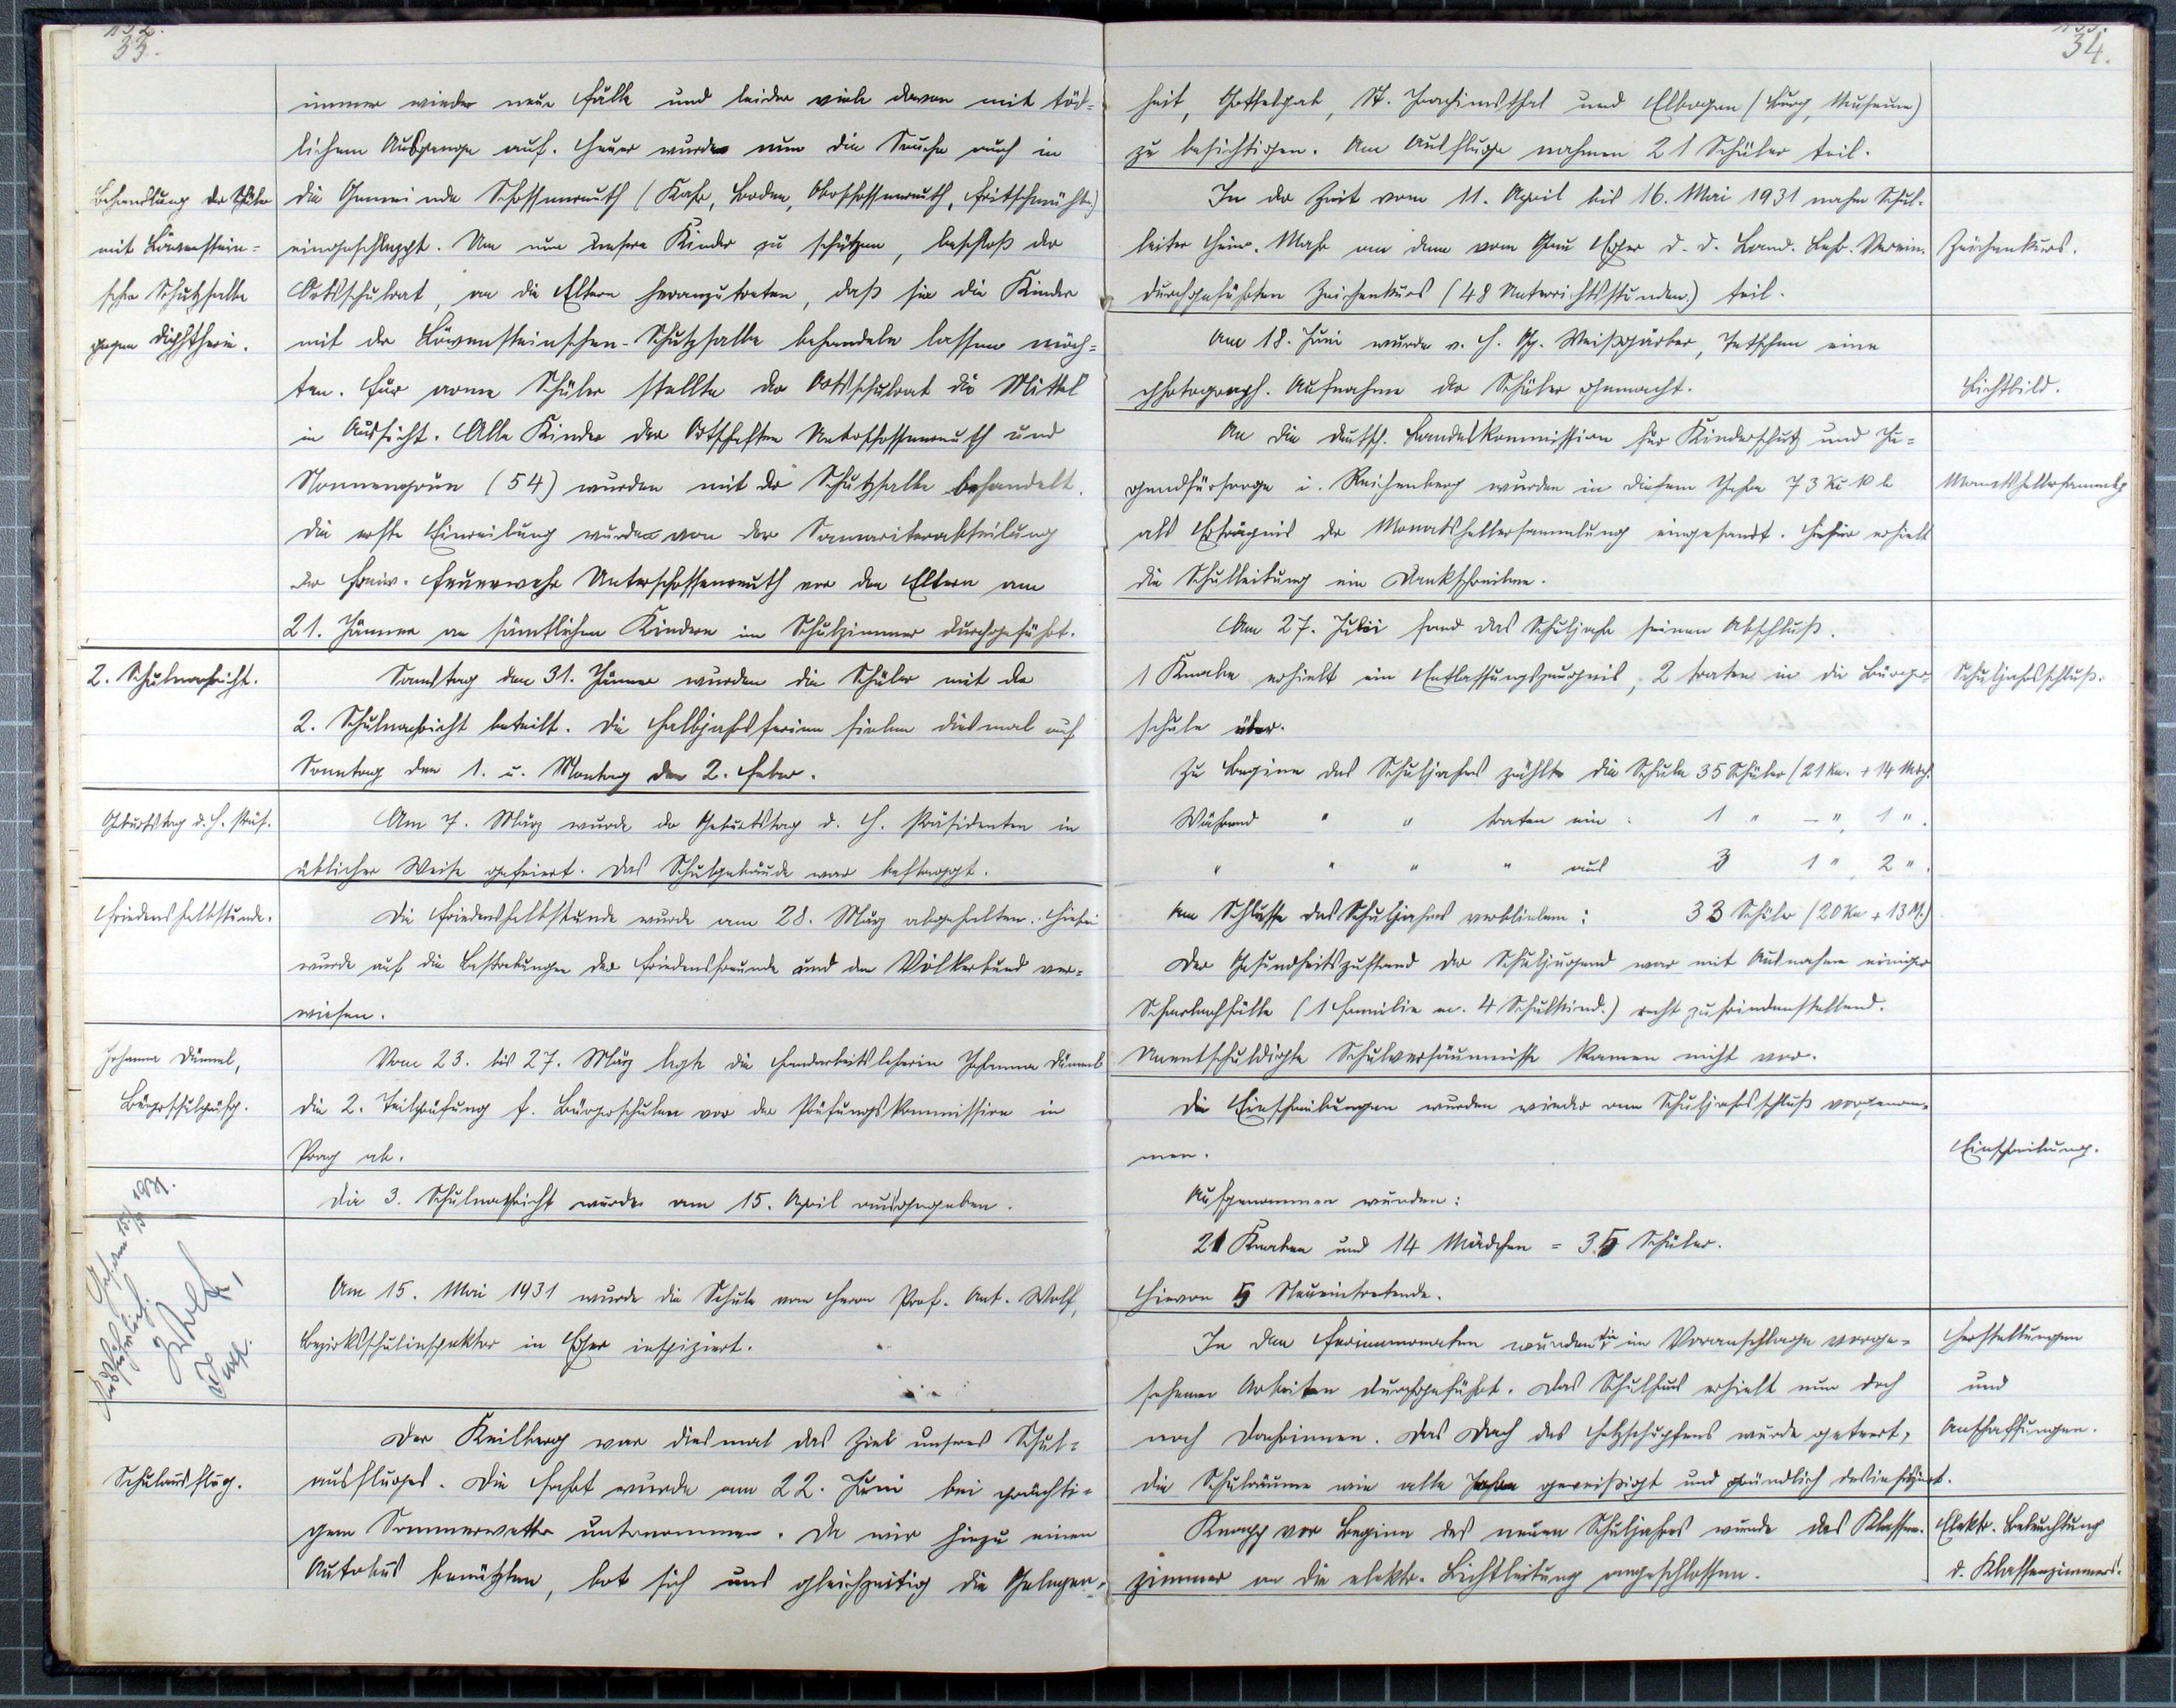 33.
immer wieder neue Fälle und leider viele davon mit töd=
lichem Ausgange auf. Heuer wurde nun die Seuche auch in
Behandlung der Schüler
die Gemeinde Schossenreuth (Kahr, Boden, Oberschossenreuth, Fritschmühle)
mit Löwenstein=
eingeschleppt. Um nun unsere Kinder zu schützen, beschloß der
scher Schutzsalbe
Ortsschulrat, an die Eltern heranzutreten, daß sie die Kinder
gegen Diphtherie.
mit der Löwensteinschen-Schutzsalbe behandeln lassen möch=
ten. Für arme Schüler stellte der Ortsschulrat die Mittel
in Aussicht. Alle Kinder der Ortschaften Unterschossenreuth und
Nonnengrün (54) wurden mit der Schutzsalbe behandelt.
Die erste Einreibung wurde von der Samariterabteilung
der freiw. Feuerwehr Unterschossenreuth vor den Eltern am
21. Jänner an sämtlichen Kindern im Schulzimmer durchgeführt.
2. Schulnachricht.
Samstag den 31. Jänner wurden die Schüler mit der
2. Schulnachricht beteilt. Die Halbjahrsferien fielen diesmal auf
Sonntag den 1. u. Montag den 2. Feber.
Geburtstag d. H. Präs.
Am 7. März wurde der Geburtstag d. H. Präsidenten in
üblicher Weise gefeiert. Das Schulgebäude war beflaggt.
Friedenshalbstunde.
Die Friedenshalbstunde wurde am 28. März abgehalten. Hiebei
wurde auf die Bestrebungen der Friedensfreunde und den Völkerbund ver=
wiesen.
Johanna Dümml,
Vom 23. bis 27. März legte die Handarbeitslehrerin Johanna Dümml
Bürgerschulprüfg.
die 2. Teilprüfung f. Bürgerschulen vor der Prüfungskommission in
Prag ab.
Die 3. Schulnachricht wurde am 15. April ausgegeben.
Gesehen 15/5 1931.
Wolf,
Am 15. Mai 1931 wurde die Schule von Herrn Prof. Ant. Wolf,
Bezirksschulinspektor in Eger inspiziert.
Der Keilberg war diesmal das Ziel unseres Schul=
Schulausflug.
ausfluges. Die Fahrt wurde am 22. Juni bei prächti=
gem Sommerwetter unternommen. Da wir hiezu einen
Autobus benützten, bot sich uns gleichzeitig die Gelegen=
34.
heit, Gottesgab, St. Joachimsthal und Elbogen (Burg, Museum)
zu besichtigen. Am Ausfluge nahmen 21 Schüler teil.
In der Zeit vom 11. April bis 16. Mai 1931 nahm Schul-
leiter Heinr. Mahr an dem vom Gau Eger d. D. Land. Lehr. Verein.
Zeichenkurs.
durchgeführten Zeichenkurs (48 Unterrichtsstunden) teil.
Am 18. Juni wurde v. H. Gg. Weißgärber, Tetschen eine
photograph. Aufnahme der Schüler gemacht.
Lichtbild.
An die deutsch. Landeskommission für Kinderschutz und Ju=
gendfürsorge i. Reichenberg wurden in diesem Jahre 73 Kč
Monatshellersammlg
als Erträgnis der Monatshellersammlung eingesandt. Hiefür erhielt
die Schulleitung ein Dankschreiben.
Am 27. Juni fand das Schuljahr seinen Abschluß.
1 Knabe erhielt ein Entlassungszeugnis, 2 traten in die Bürger-
Schuljahrsschluß.
schule über.
Zu Beginn des Schuljahres zählte die Schule 35 Schüler (21 Kn. + 14 Mdch.
Während " " traten ein: 1 " – " 1 ".
" " " " aus 3 1 " 2 ".
Am Schlusse des Schuljahres verblieben: 33 Schüler (20 Kn + 13 M.)
Der Gesundheitszustand der Schuljugend war mit Ausnahme einiger
Scharlachfälle (1 Familie m. 4 Schulkind.) recht zufriedenstellend.
Unentschuldigte Schulversäumnisse kamen nicht vor.
Die Einschreibungen wurden wieder am Schuljahrsschluß vorgenom=
men.
Einschreibung.
Aufgenommen wurden:
21 Knaben und 14 Mädchen = 35 Schüler.
Hievon 5 Neueintretende.
In den Ferienmonaten wurden die im Voranschlage vorge=
Herstellungen
sehenen Arbeiten durchgeführt. Das Schulhaus erhielt nun doch
und
noch Dachrinnen. Das Dach des Holzschupfens wurde geteert,
Anschaffungen.
die Schulräume wie alle Jahre geweißigt und gründlich desinfiziert.
Knapp vor Beginn des neuen Schuljahres wurde das Klassen-
Elektr. Beleuchtung
zimmer an die elektr. Lichtleitung angeschlossen.
d. Klassenzimmers.